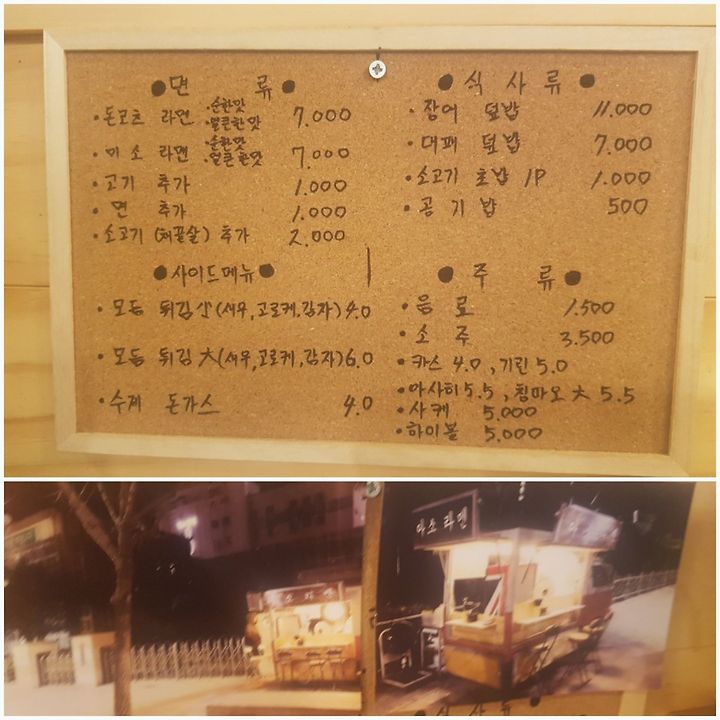 ●면 류●
·돈코츠 라멘 ·순한맛 ·얼큰한맛 7.000
·미소 라멘 ·순한맛 ·얼큰한맛 7.000
·고기 추가 1.000
·면 추가 1.000
·소고기 (채끝살) 추가 2.000
●사이드메뉴●
·모듬 튀김 小(새우,고로케,감자) 4.0
·모듬 튀김 大(새우,고로케,감자) 6.0
·수제 돈가스 4.0
●식 사 류●
·장어 덮밥 11.000
·대패 덮밥 7.000
·소고기 초밥 1P 1.000
·공기밥 500
●주 류●
·음 료 1.500
·소 주 3.500
·카스 4.0 , 기린 5.0
·아사히 5.5 , 칭따오 大 5.5
·사케 5.000
·하이볼 5.000
미소라멘
미소라멘
식 사 류